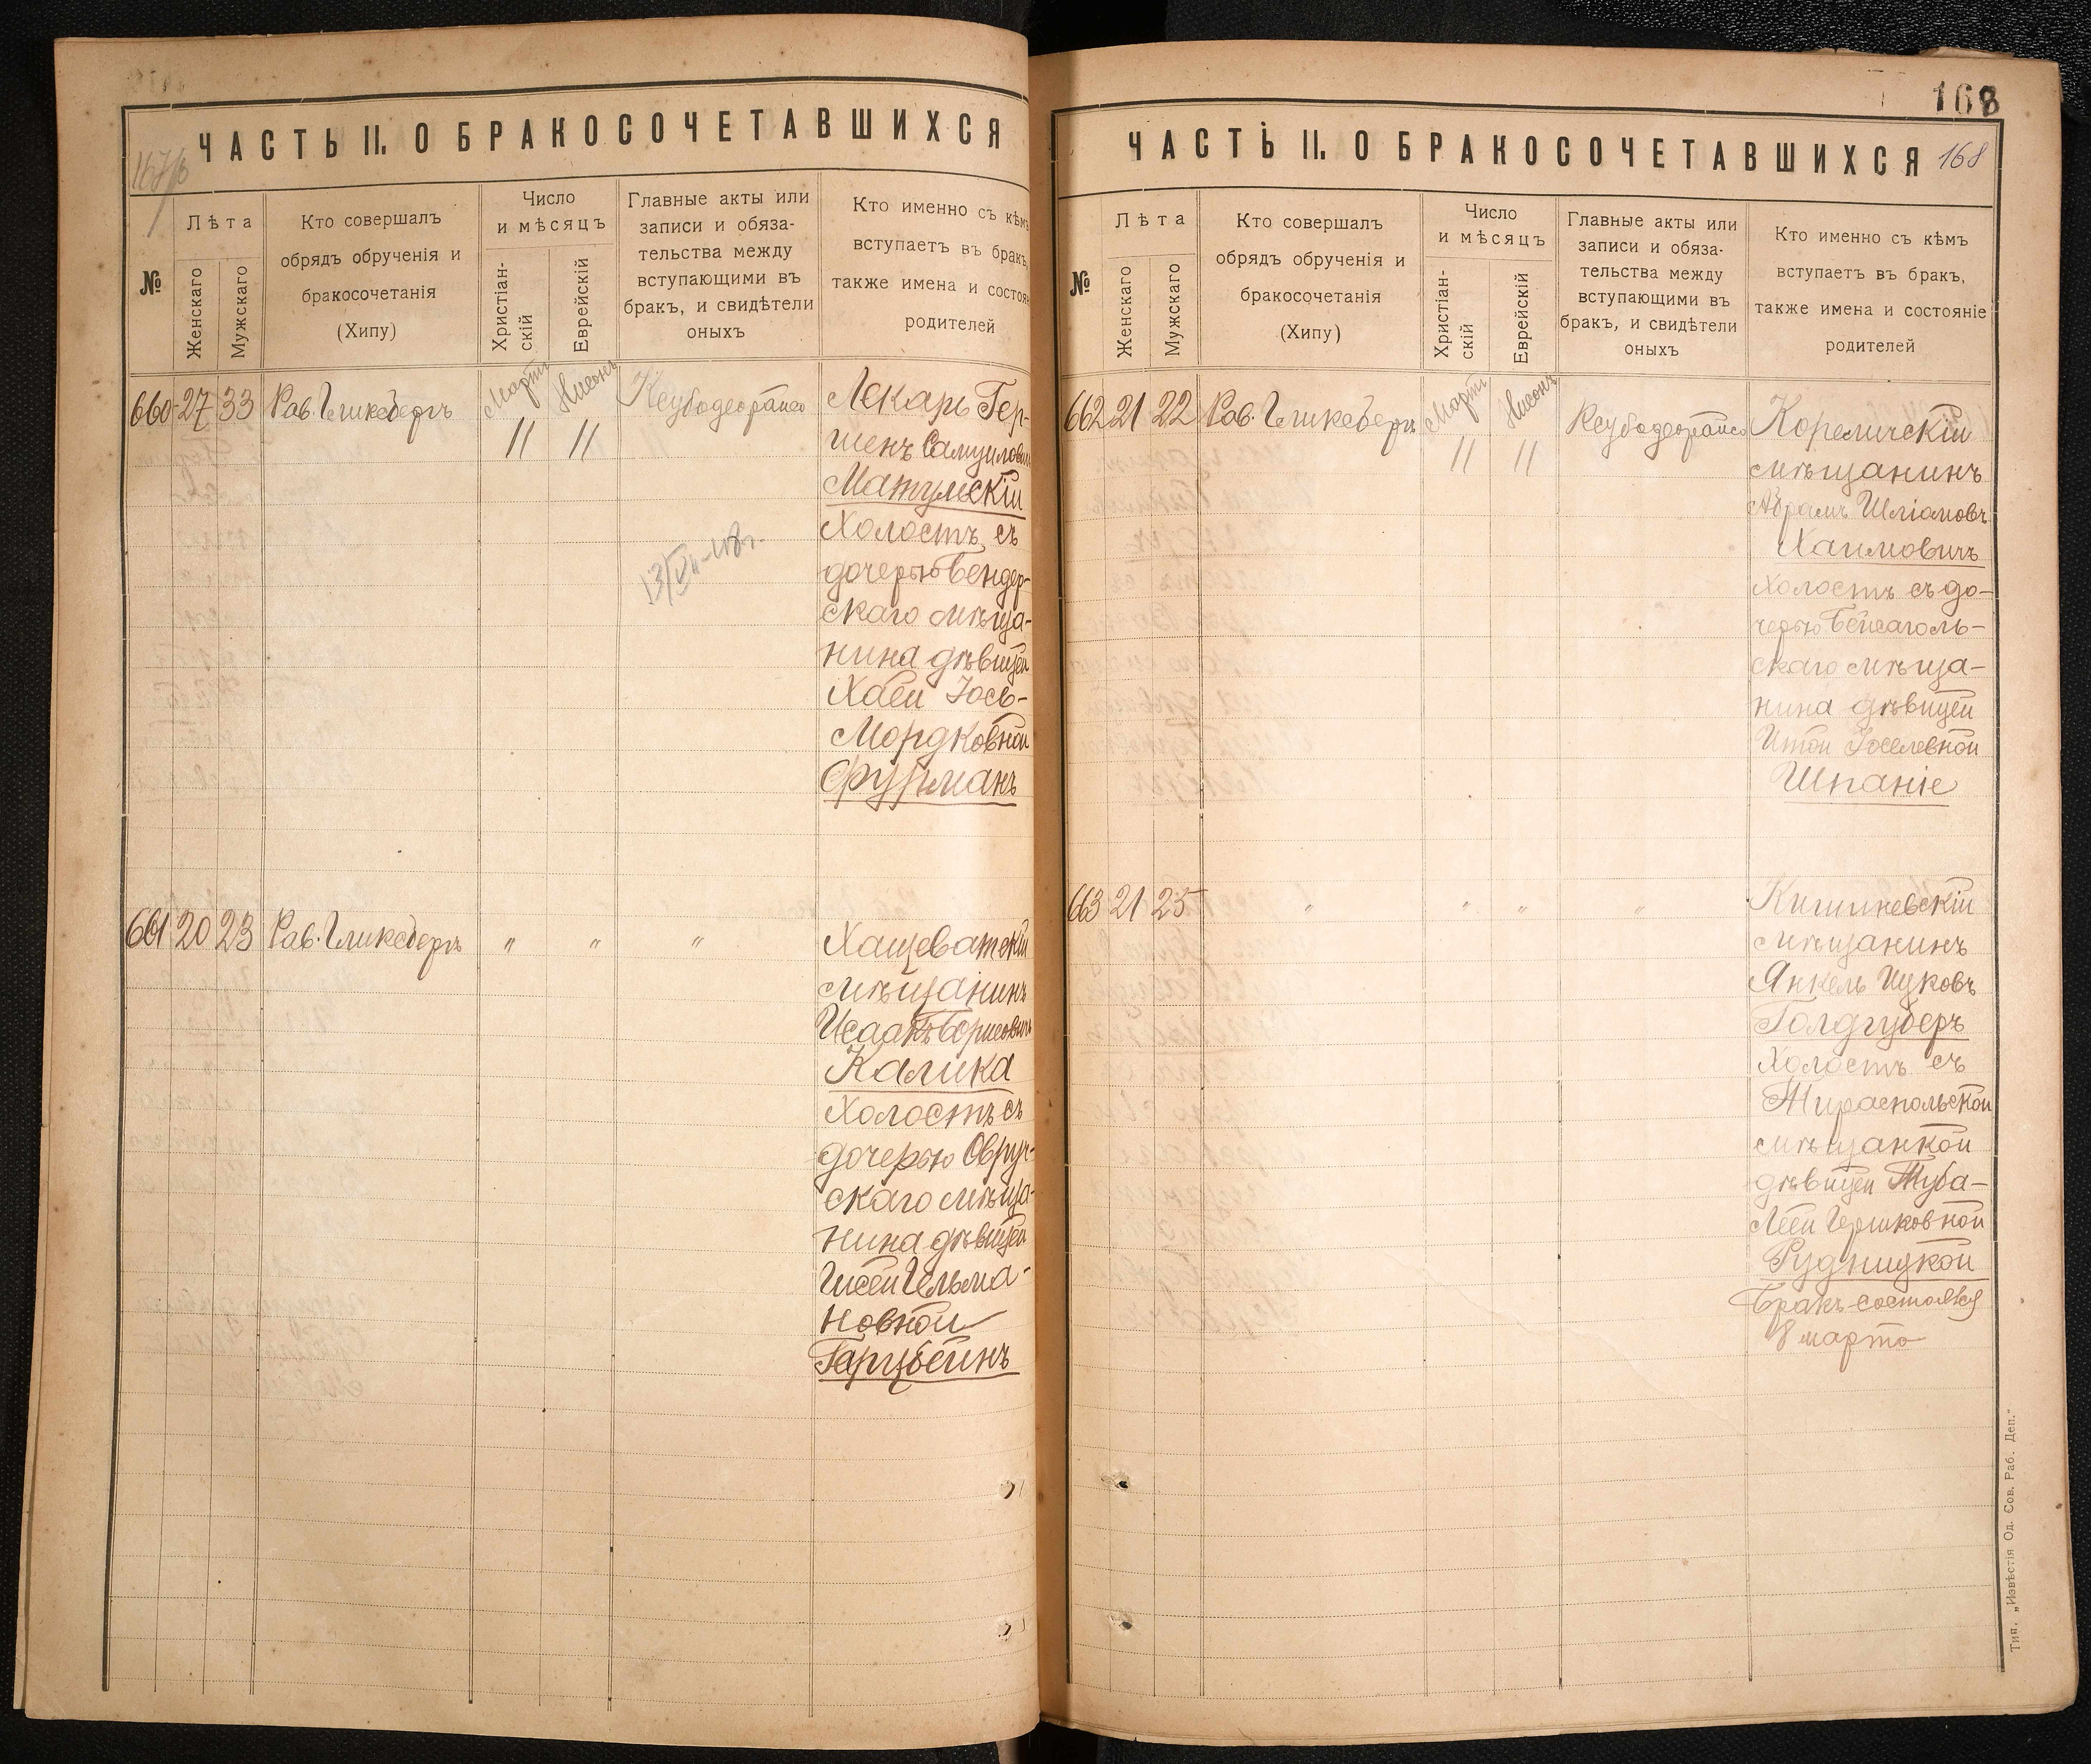 ЧАСТЬ II. О БРАКОСОЧЕТАВШИХСЯ
№
Лѣта
Женскаго
Мужскаго
Кто совершалъ
обрядъ обрученія и
бракосочетанія
(Хипу)
Число
и мѣсяцъ
Христіан-
скій
Еврейскій
Главные акты или
записи и обяза-
тельства между
вступающими въ
бракъ, и свидѣтели
оныхъ
Кто именно съ кѣмъ
вступаетъ въ бракъ,
также имена и состоян
родителей
660 27 33 Рав. Гликсбергъ
Мартъ
11
Нисонъ
11
Лекарь Гер-
шенъ Самуилович
Матумскій
Холостъ съ
дочерью Бендер-
скаго мѣща-
нина дѣвицей
Хаей Іось-
Мордковной
Фурманъ
661 20 23 Рав. Гликсбергъ
" " "
Хащеватскій
мѣщанинъ
Исаакъ Борисовичъ
Калика
Холостъ съ
дочерью Овруч-
скаго мѣща-
нина дѣвицей
новной
168
ЧАСТЬ II. О БРАКОСОЧЕТАВШИХСЯ 168
№
Лѣта
Женскаго
Мужскаго
Кто совершалъ
обрядъ обрученія и
бракосочетанія
(Хипу)
Число
и мѣсяцъ
Христіан-
скій
Еврейскій
Главные акты или
записи и обяза-
тельства между
вступающими въ
бракъ, и свидѣтели
оныхъ
Кто именно съ кѣмъ
вступаетъ въ бракъ,
также имена и состояніе
родителей
662 21 22 Рав. Гликсбергъ
Мартъ
11
Нисонъ
11
Кореличскій
мѣщанинъ
Абрамъ Шліомовъ
Хаимовичъ
холостъ съ до-
черью Бейсаголь-
скаго мѣща-
нина дѣвицей
Итой Іоселевной
Шпаніе
663 21 25 " " " "
Кишиневскій
мѣщанинъ
Янкель Ицковъ
Голдгуберъ
Холостъ съ
Тираспольской
мѣщанкой
дѣвицей Туба-
Леей Гершковной
Рудницкой
Бракъ состоялся
8 марта
Тип. „Извѣстія Од. Сов. Раб. Деп."